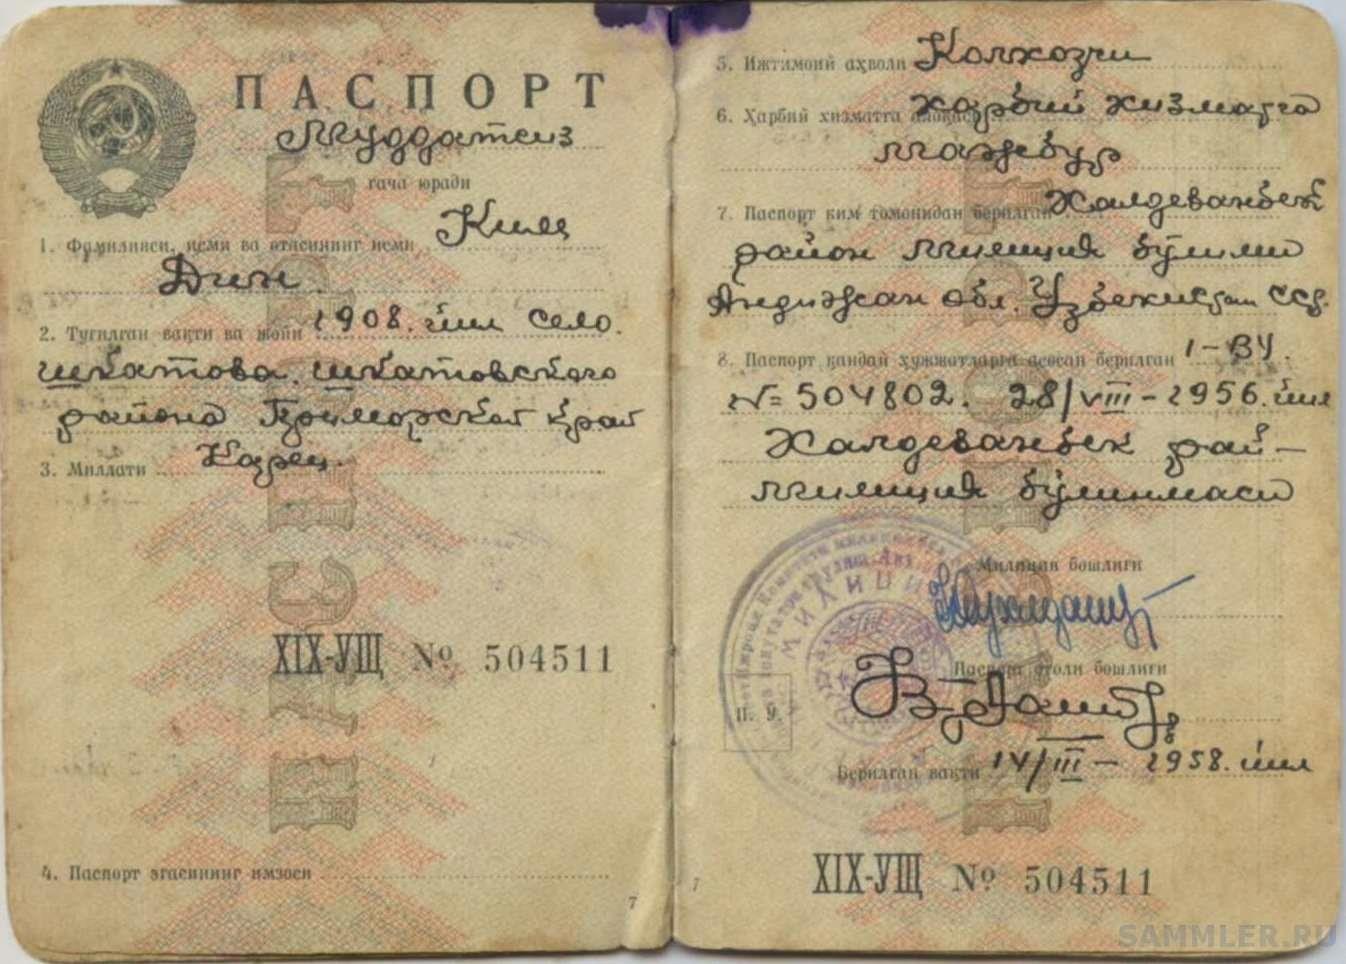 ПАСПОРТ
Муддатсиз
гача юради
1. Фамилияси, исми ва отасининг исми Ким
Дин.
2. Туғилган вақти ва жойи 1908. йил село.
Шкатова. Шкатовского
района Приморский край
3. Миллати Карец.
XIX-УЩ № 504511
4. Паспорт эгасининг имзоси
7
5. Ижтимоий аҳволи Колхозчи
6. Ҳарбий хизматга алоқаси харбий хизматга
мажбур
7. Паспорт ким томонидан берилган Халдеванбек
район милиция бўлими
Андижан обл. Узбекистан ССР.
8. Паспорт қандай ҳужжатларга асосан берилган 1-ВЧ.
№ 504802. 28/VIII-1956. йил
Халдеванбек рай-
милиция бўлинмаси
Милиция бошлиғи
МИЛИЦИ
Паспорт столи бошлиғи
П. Ў.
Берилган вақти 14/III-1958. йил
XIX-УЩ № 504511
7
SAMMLER.RU